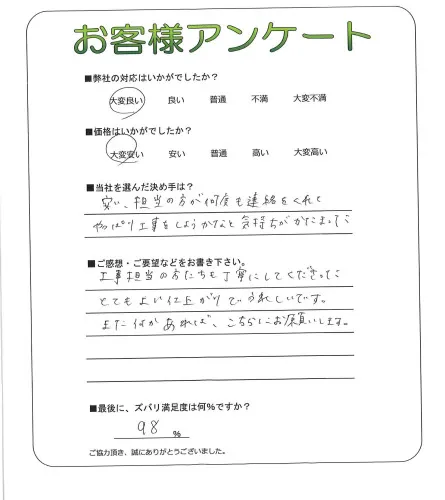 お客様アンケート
■弊社の対応はいかがでしたか？
大変良い 良い 普通 不満 大変不満
■価格はいかがでしたか？
大変安い 安い 普通 高い 大変高い
■当社を選んだ決め手は？
安い、担当の方が何度も連絡をくれて
やっぱり工事をしようかなと気持ちがかたまって
■ご感想・ご要望などをお書き下さい。
工事担当の方たちも丁寧にしてくださって
とてもよい仕上がりでうれしいです。
また何かあれば、こちらにお願いします。
■最後に、ズバリ満足度は何%ですか？
98 %
ご協力頂き、誠にありがとうございました。